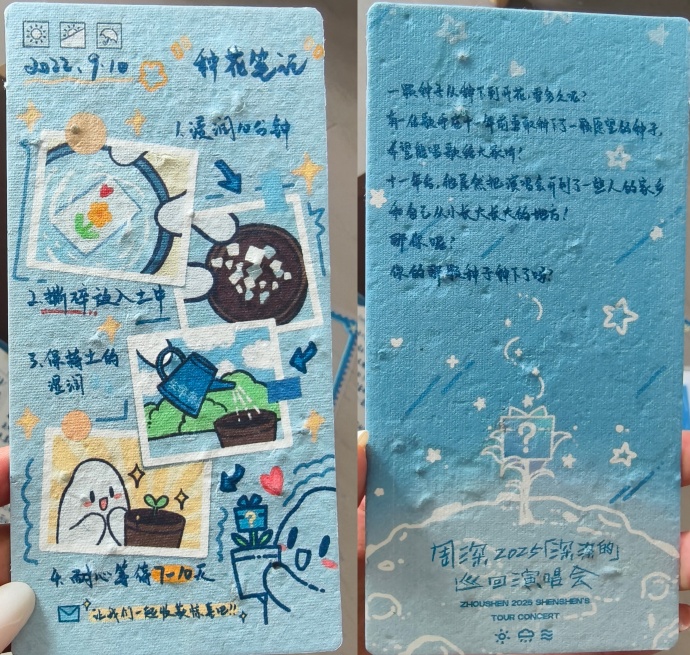 2022.9.10
种花笔记
1.湿润10分钟
2.撕碎放入土中
3.保持土的
湿润
4.耐心等待7-10天
让我们一起收获惊喜吧!!
?
一颗种子从种下到开花,要多久呢?
有一位歌手在十一年前勇敢种下了一颗愿望的种子,
希望能唱歌给大家听!
十一年后,他居然把演唱会开到了一些人的家乡
和自己从小长大长大的地方!
那你呢?
你的那颗种子种下了吗?
?
周深2025「深深的」
巡回演唱会
ZHOUSHEN 2025 SHENSHEN'S
TOUR CONCERT